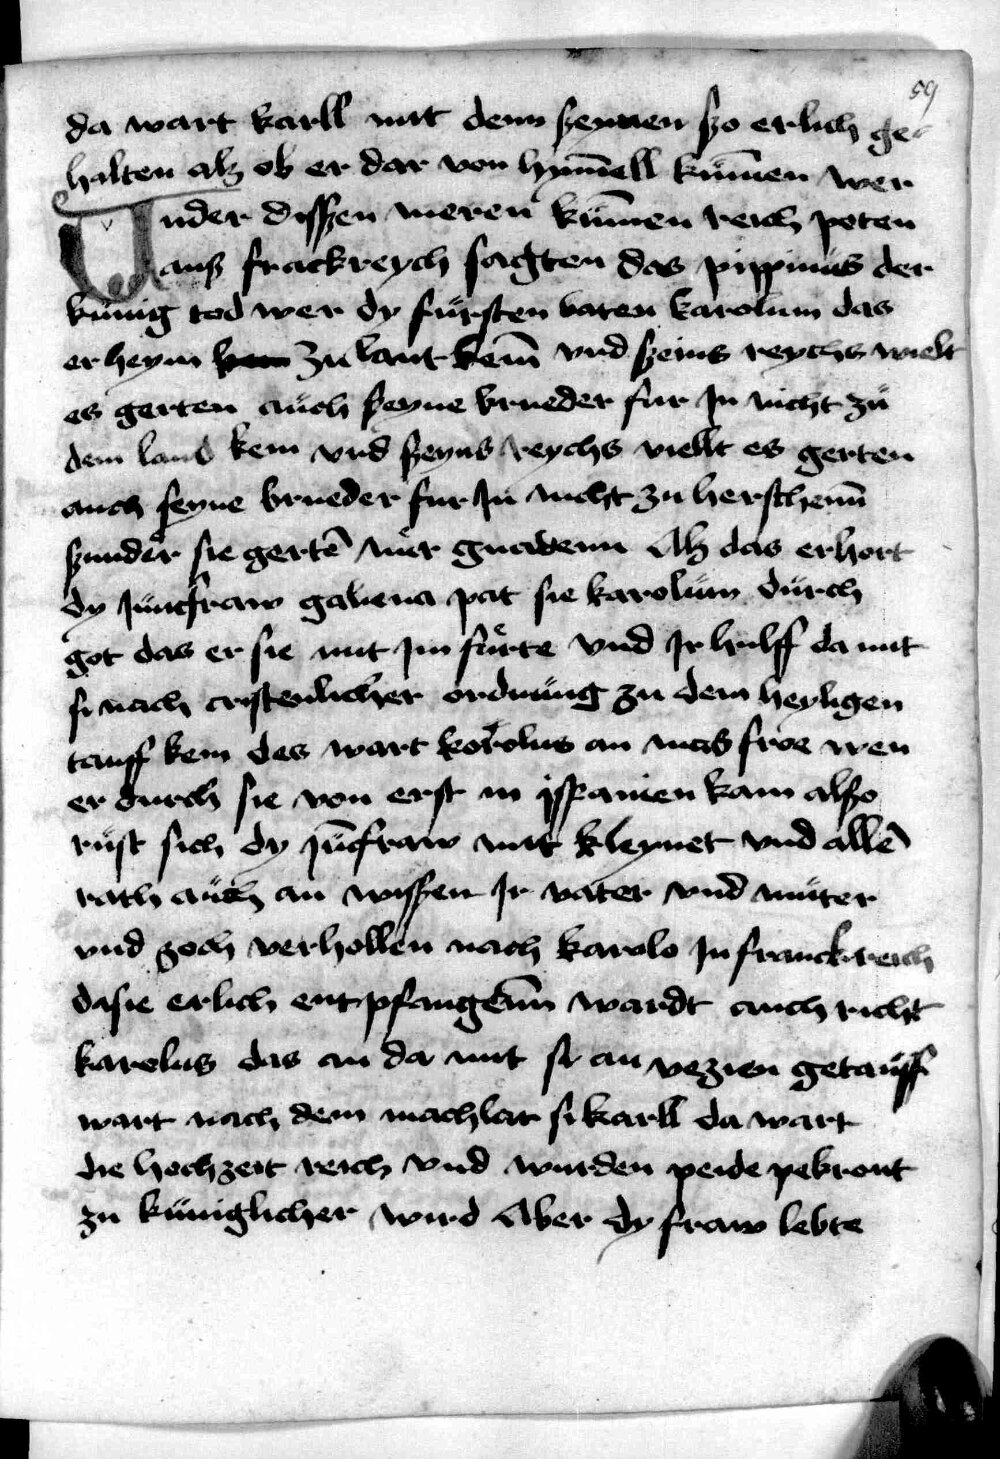 59
da wart karll mit denn szeynen szo erlich ge
halten alz ob er dar von hym̄ell kum̄en wer
Under diszen meren kum̄en reich poten
ausz frackreych sagten das pippinus der
kunig tod wer dy fürsten baten karolum das
er heym zu lant kem̄ vnd szeins reychs wielt
es gerten auch seyne brueder fur In nicht zu
dem land kem vnd szeyns reychs viellt es gerten
auch seyne brueder fur In nicht zu herschenn̄
szunder sie gertē mer gnadenn Alz das erhort
dy Junckfraw galiena pat sie karolum durch
got das er sie mit Im fuͤrte vnd Ir hulff da mit
si nach cristenlicher ordnung zu dem heyligen
tauff kem des wart korolus an mas froe wen
er durch sie von erst in jspanien kam alszo
rust sich dy Jūcfraw mit kleynet vnd allē
rath auch an wiszen Ir vater vnd muter
vnd zoch verhollen nach karolo In franckreich
da sie erlich entpfangenn̄ wardt auch richt
karolus das an da mit si an vezien getauff
wart nach dem machlat si karll da wart
die hochzeit reich vnd wurden peide pekront
zu kuniglicher wird Aber dy fraw lebte